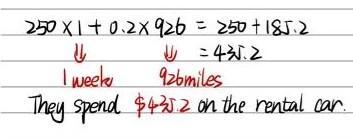 250 × 1 + 0.2 × 926 = 250 + 185.2
⇓ ⇓ = 435.2
1 week 926miles
They spend $435.2 on the rental car.